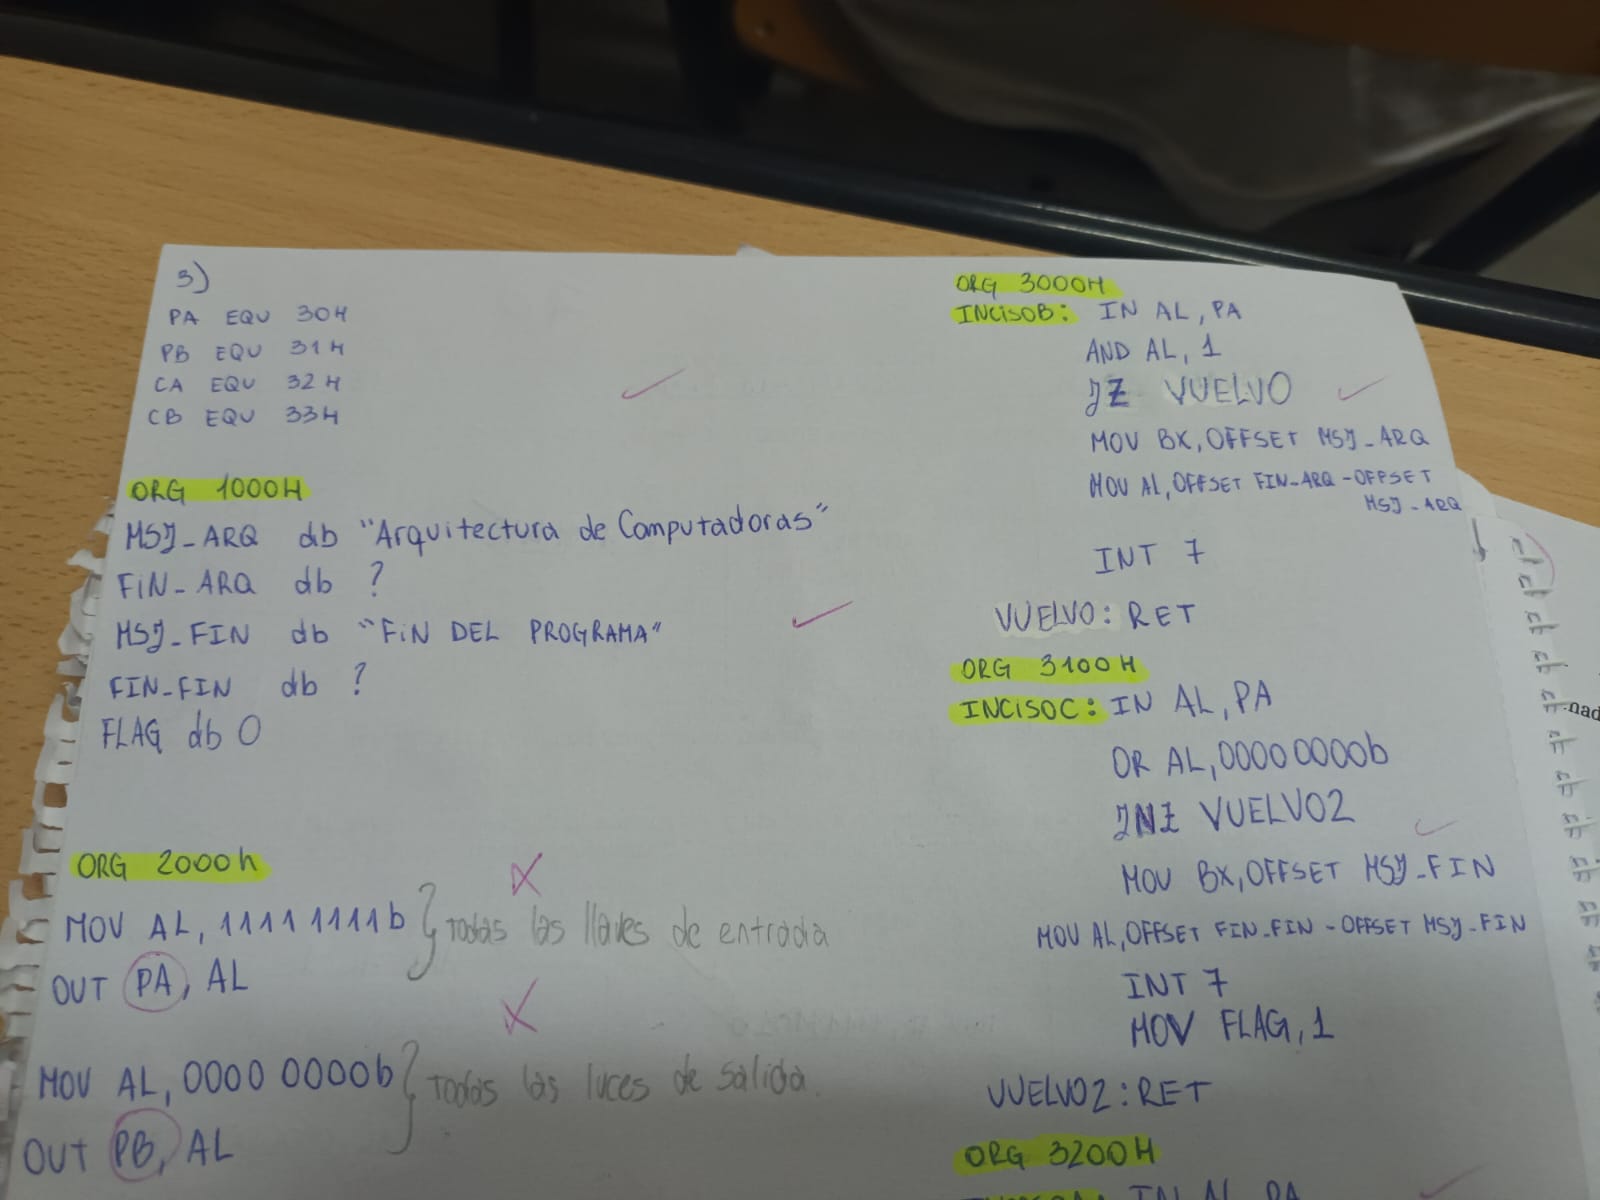 3)
PA EQU 30H
PB EQU 31H
CA EQU 32H
CB EQU 33H
ORG 1000H
MSJ_ARQ db "Arquitectura de Computadoras"
FIN_ARQ db ?
MSJ_FIN db "FIN DEL PROGRAMA"
FIN_FIN db ?
FLAG db 0
ORG 2000h
MOV AL, 1111 1111b } todas las llaves de entrada
OUT PA, AL
MOV AL, 0000 0000b } todas las luces de salida.
OUT PB, AL
ORG 3000H
INCISOB: IN AL, PA
AND AL, 1
JZ VUELVO
MOV BX, OFFSET MSJ_ARQ
MOV AL, OFFSET FIN_ARQ - OFFSET
MSJ_ARQ
INT 7
VUELVO: RET
ORG 3100H
INCISOC: IN AL, PA
OR AL, 0000 0000b
JNZ VUELVO2
MOV BX, OFFSET MSJ_FIN
MOV AL, OFFSET FIN_FIN - OFFSET MSJ_FIN
INT 7
MOV FLAG, 1
VUELVO2: RET
ORG 3200H
IN AL, PA
nad